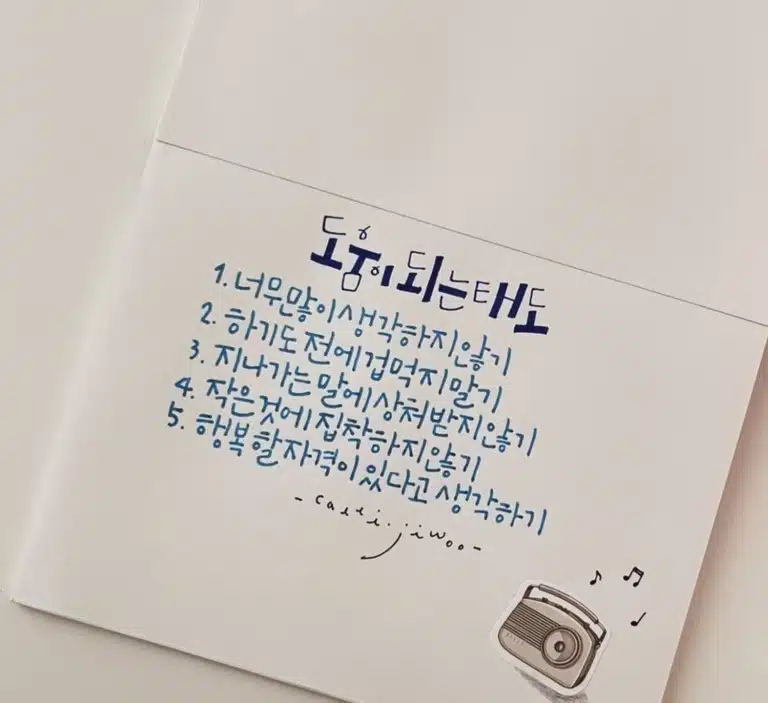 도움이 되는 태도
1. 너무 많이 생각하지 않기
2. 하기도 전에 겁먹지 말기
3. 지나가는 말에 상처받지 않기
4. 작은 것에 집착하지 않기
5. 행복할 자격이 있다고 생각하기
- calli.jiwoo -